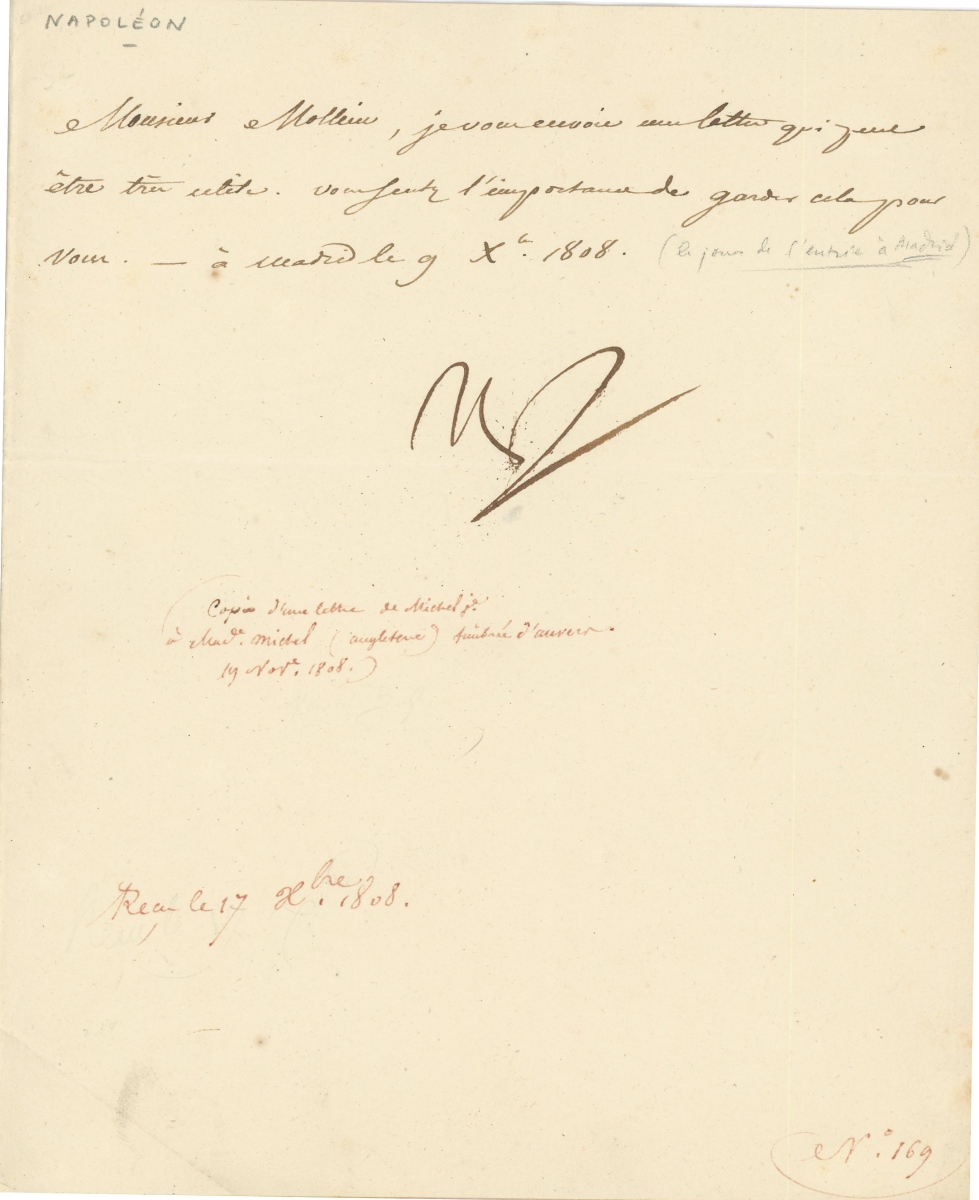 NAPOLÉON
Monsieur Mollien, je vous envoie une lettre qui peut
être très utile. vous sentez l'importance de garder cela pour
vous. — à madrid le 9 Xbre. 1808. (le jour de l'entrée à Madrid)
Np
Copie d'une lettre de Michel je.
à Made. michel (angleterre) timbrée d'anvers.
19 Nove. 1808.)
Reçu le 17 Xbre. 1808.
N.° 169